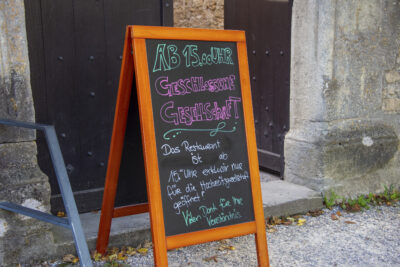 AB 15.00 UHR
GESCHLOSSENE
GESELLSCHAFT
Das Restaurant
ist ab
15 Uhr exklusiv nur
für die Hochzeitsgesellschaft
geöffnet
Vielen Dank für Ihr
Verständnis